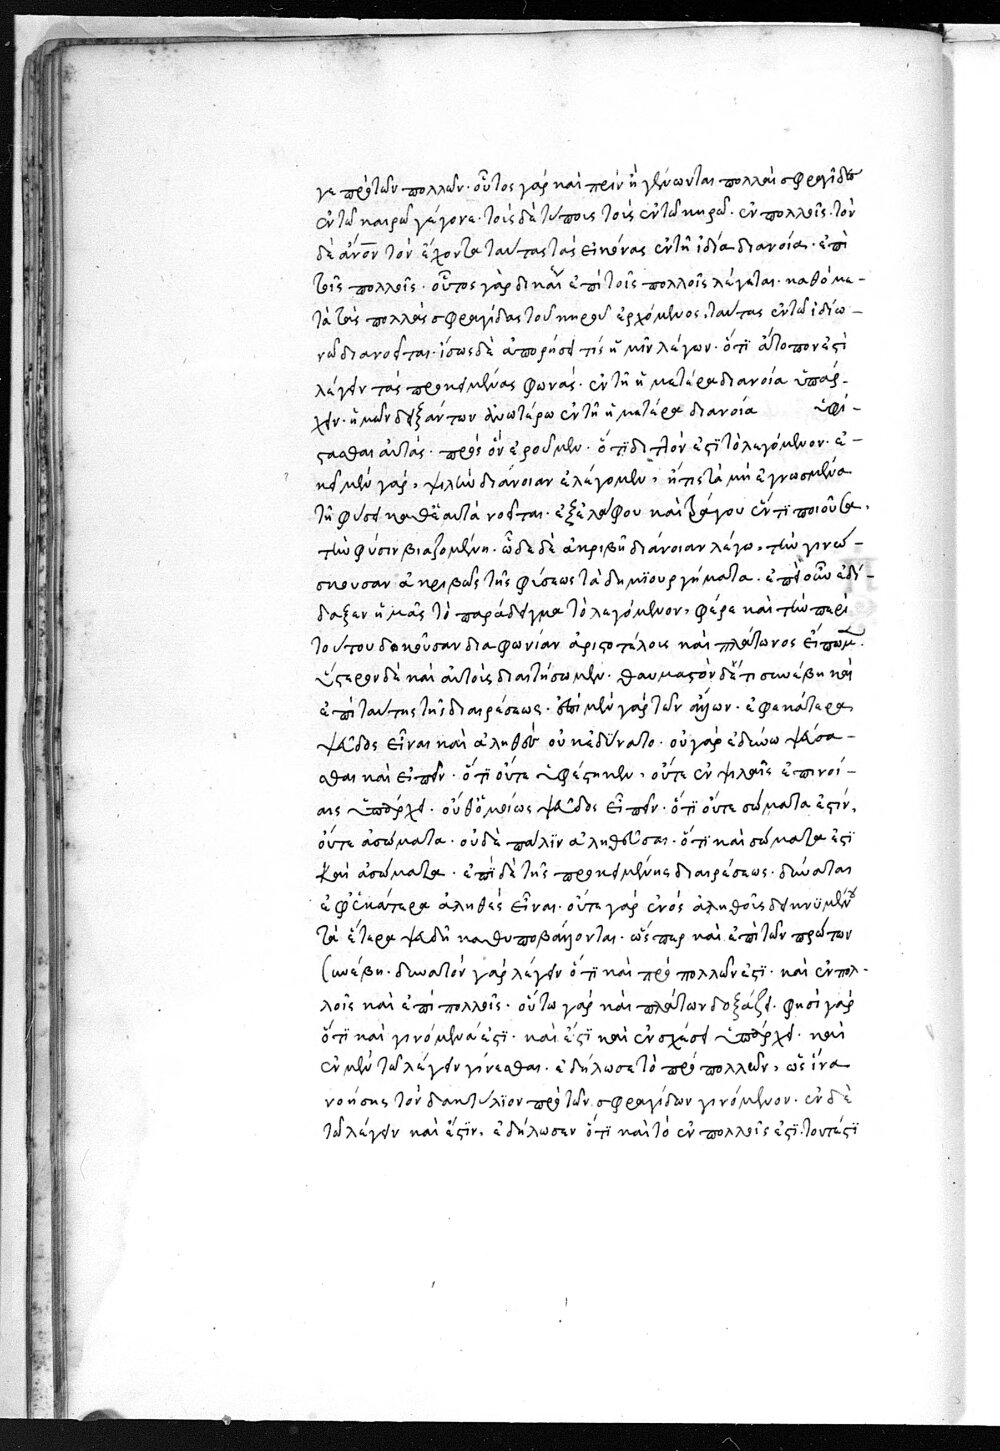 γε πρὸ τῶν πολλῶν· οὗτος γὰρ καὶ πρὶν ἢ γένωνται πολλαὶ σφραγίδες
ἐν τῶ καιρῶ γέγονε· τοῖς δὲ τύποις τοῖς ἐν τῶ κηρῶ· ἐν πολλοῖς· τὸν
δὲ ἄνον τὸν ἔχοντα ταύτας τὰς εἰκόνας ἐν τῆ ἰδία διανοία· ἐπὶ
τοῖς πολλοῖς· οὗτος γὰρ δικαι ἐπὶ τοῖς πολλοῖς λέγεται· καθὸ με-
τὰ τὰς πολλὰς σφραγίδας τοῦ κηροῦ ἐρχόμενος, ταύτας ἐν τῶ ἰδίω
νῶ διανοεῖται· ἴσως δὲ ἀπορήσει τίς ἡμῖν λέγων· ὅτι ἄτοπον ἐστὶ
λέγειν τὰς προκειμένας φωνάς· ἐν τῆ ἡμετέρα διανοία ὑπάρ-
χειν· ἡμῶν δειξάντων ἀνωτέρω ἐν τῆ ἡμετέρα διανοία ὑφί-
στασθαι αὐτάς· πρὸς ὃν ἐροῦμεν· ὅτι διττόν ἐστι τὸ λεγόμενον· ἐ-
κεῖ μὲν γὰρ, ψιλὴν διάνοιαν ἐλέγομεν, ἥτις τὰ μὴ ἐγνωσμένα
τῆ φύσει καθ' ἑαυτὰ νοεῖται· ἐξ ἐλάφου καὶ τράγου ἕν τι ποιοῦσα,
τὴν φύσιν βιαζομένη· ὧδε δὲ ἀκριβῆ διάνοιαν λέγω, τὴν γινώ-
σκουσαν ἀκριβῶς τῆς φύσεως τὰ δημιουργήματα· ἐπεὶ οὖν ἐδί-
δαξεν ἡμᾶς τὸ παράδειγμα τὸ λεγόμενον, φέρε καὶ τὴν περὶ
τούτου δοκοῦσαν διαφωνίαν ἀριστοτέλους καὶ πλάτωνος εἴπωμεν·
ὕστερον δὲ καὶ αὐτοῖς διαιτήσωμεν· θαυμαστὸν δέ τι συνέβη καὶ
ἐπὶ ταύτης τῆς διαιρέσεως· ἐπὶ μὲν γὰρ τῶν ἄλλων· ἐφ' ἑκάτερα
ψεῦδος εἶναι καὶ ἀληθὲς οὐκ ἐδύνατο· οὐ γὰρ ἐδύνω ψεύσα-
σθαι καὶ εἰπεῖν· ὅτι οὔτε ὑφέστηκεν, οὔτε ἐν ψιλαῖς ἐπινοί-
αις ὑπάρχει· οὐθ' ὁμοίως ψεῦδος εἰπεῖν· ὅτι οὔτε σώματα ἐστίν,
οὔτε ἀσώματα· οὐδὲ πάλιν ἀληθεῦσαι· ὅτι καὶ σώματα ἐστι
καὶ ἀσώματα· ἐπὶ δὲ τῆς προκειμένης διαιρέσεως· δύναται
ἐφ' ἑκάτερα ἀληθὲς εἶναι· οὔτε γὰρ ἑνὸς ἀληθοῦς δεικνυμένου
τὰ ἕτερα ψευδῆ καθυποβάλλονται· ὥσπερ καὶ ἐπὶ τῶν πρώτων
συνέβη· δυνατὸν γὰρ λέγειν ὅτι καὶ πρὸ πολλῶν ἐστι· καὶ ἐν πολ-
λοῖς καὶ ἐπὶ πολλοῖς· οὕτω γὰρ καὶ πλάτων δοξάζει· φησὶ γὰρ
ὅτι καὶ γινόμενά ἐστι· καὶ ἔστι καὶ ἐν σχέσει ὑπάρχει· καὶ
ἐν μὲν τῶ λέγειν γίνεσθαι· ἐδήλωσε τὸ πρὸ πολλῶν, ὡς ἵνα
νοήσης τὸν δακτύλιον πρὸ τῶν σφραγίδων γινόμενον· ἐν δὲ
τῶ λέγειν καὶ ἔστιν, ἐδήλωσεν ὅτι καὶ τὸ ἐν πολλοῖς ἐστι· τουτέστι